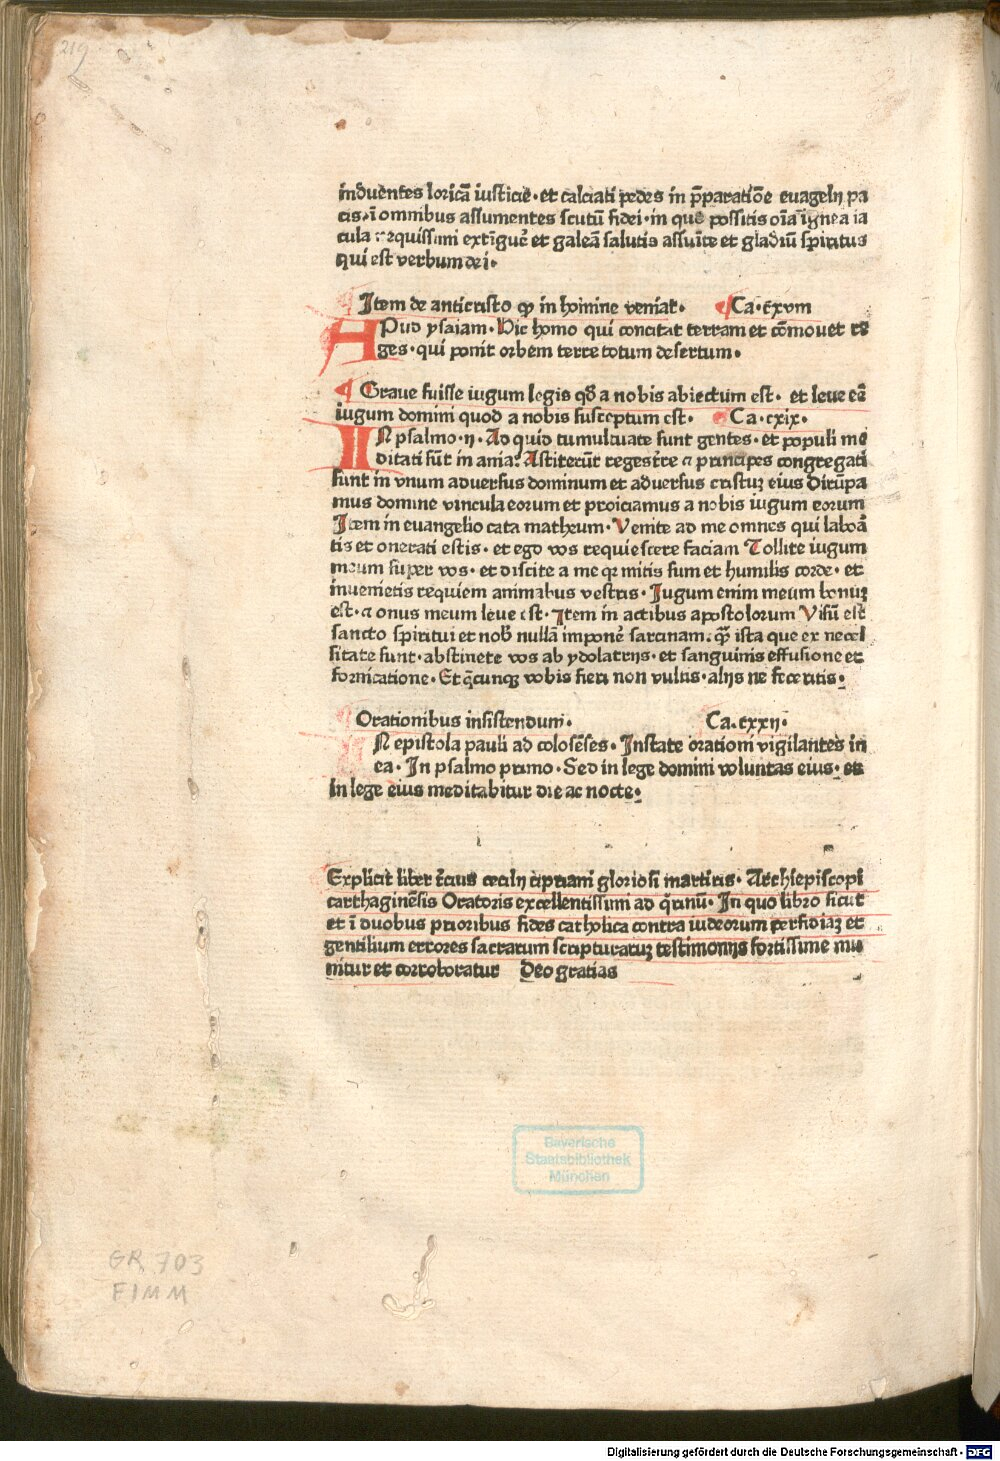 219
induentes loricã iusticie· et calciati pedes in p̄paratiõe euãgelij pa
cis· ĩ omnibus assumentes scutũ fidei· in quo possitis oĩa ignea ia
cula nequissimi extĩguẽ et galeã salutis assuĩte et gladiũ spiritus
qui est verbum dei·
Item de anticristo ꝙ in homine veniat· Ca·cxvııı
APud ysaiam· Hic homo qui concitat terram et cõmouet re
ges· qui ponit orbem terre totum desertum·
Graue fuisse iugum legis qđ a nobis abiectum est· et leue eẽ
iugum domini quod a nobis susceptum est· Ca·cxix·
IN psalmo·ıj· Ad quid tumultuate sunt gentes· et populi me
ditati sũt in ania? Astiterũt reges tr̃e ⁊ principes congregati
sunt in vnum aduersus dominum et aduersus cristuꝫ eius Dirũpa
mus domine vincula eorum et proiciamus a nobis iugum eorum
Item in euangelio cata matheum· Venite ad me omnes qui laboã
tis et onerati estis· et ego vos requiescere faciam Tollite iugum
meum super vos· et discite a me qꝛ mitis sum et humilis corde· et
inuenietis requiem animabus vestris· Iugum enim meum bonuꝫ
est· ⁊ onus meum leue est· Item in actibus apostolorum Visũ est
sancto spiritui et nob̃ nullã imponẽ sarcinam· q̃ꝫ ista que ex necel
sitate sunt· abstinete vos ab ydolatrijs· et sanguinis effusione et
fornicatione· Et q̃cunqꝫ vobis fieri non vultis· alijs ne feceritis·
Orationibus insistendum· Ca·cxxıj·
IN epistola pauli ad colosẽses· Instate orationi vigilantes in
ea· In psalmo primo· Sed in lege domini voluntas eius· et
in lege eius meditabitur die ac nocte·
Explicit liber t̃cius cecilij cipriani gloriosi martiris· Archiepiscopi
carthaginẽsis Oratoris excellentissimi ad q̃rinũ· In quo libro sicut
et ĩ duobus prioribus fides catholica contra iudeorum perfidiaꝫ et
gentilium errores sacrarum scripturaruꝫ testimonijs fortissime mu
nitur et corroboratur Deo gratias
Bayerische
Staatsbibliothek
München
GR 703
FIMM
Digitalisierung gefördert durch die Deutsche Forschungsgemeinschaft - DFG